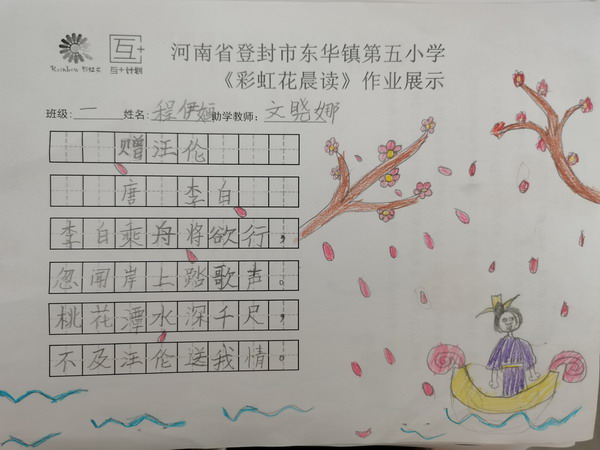 Rainbow 彩虹花
互+
互+计划
河南省登封市东华镇第五小学
《彩虹花晨读》作业展示
班级:一 姓名:程伊姮 助学教师:文晓娜
赠汪伦
唐 李白
李白乘舟将欲行,
忽闻岸上踏歌声。
桃花潭水深千尺,
不及汪伦送我情。